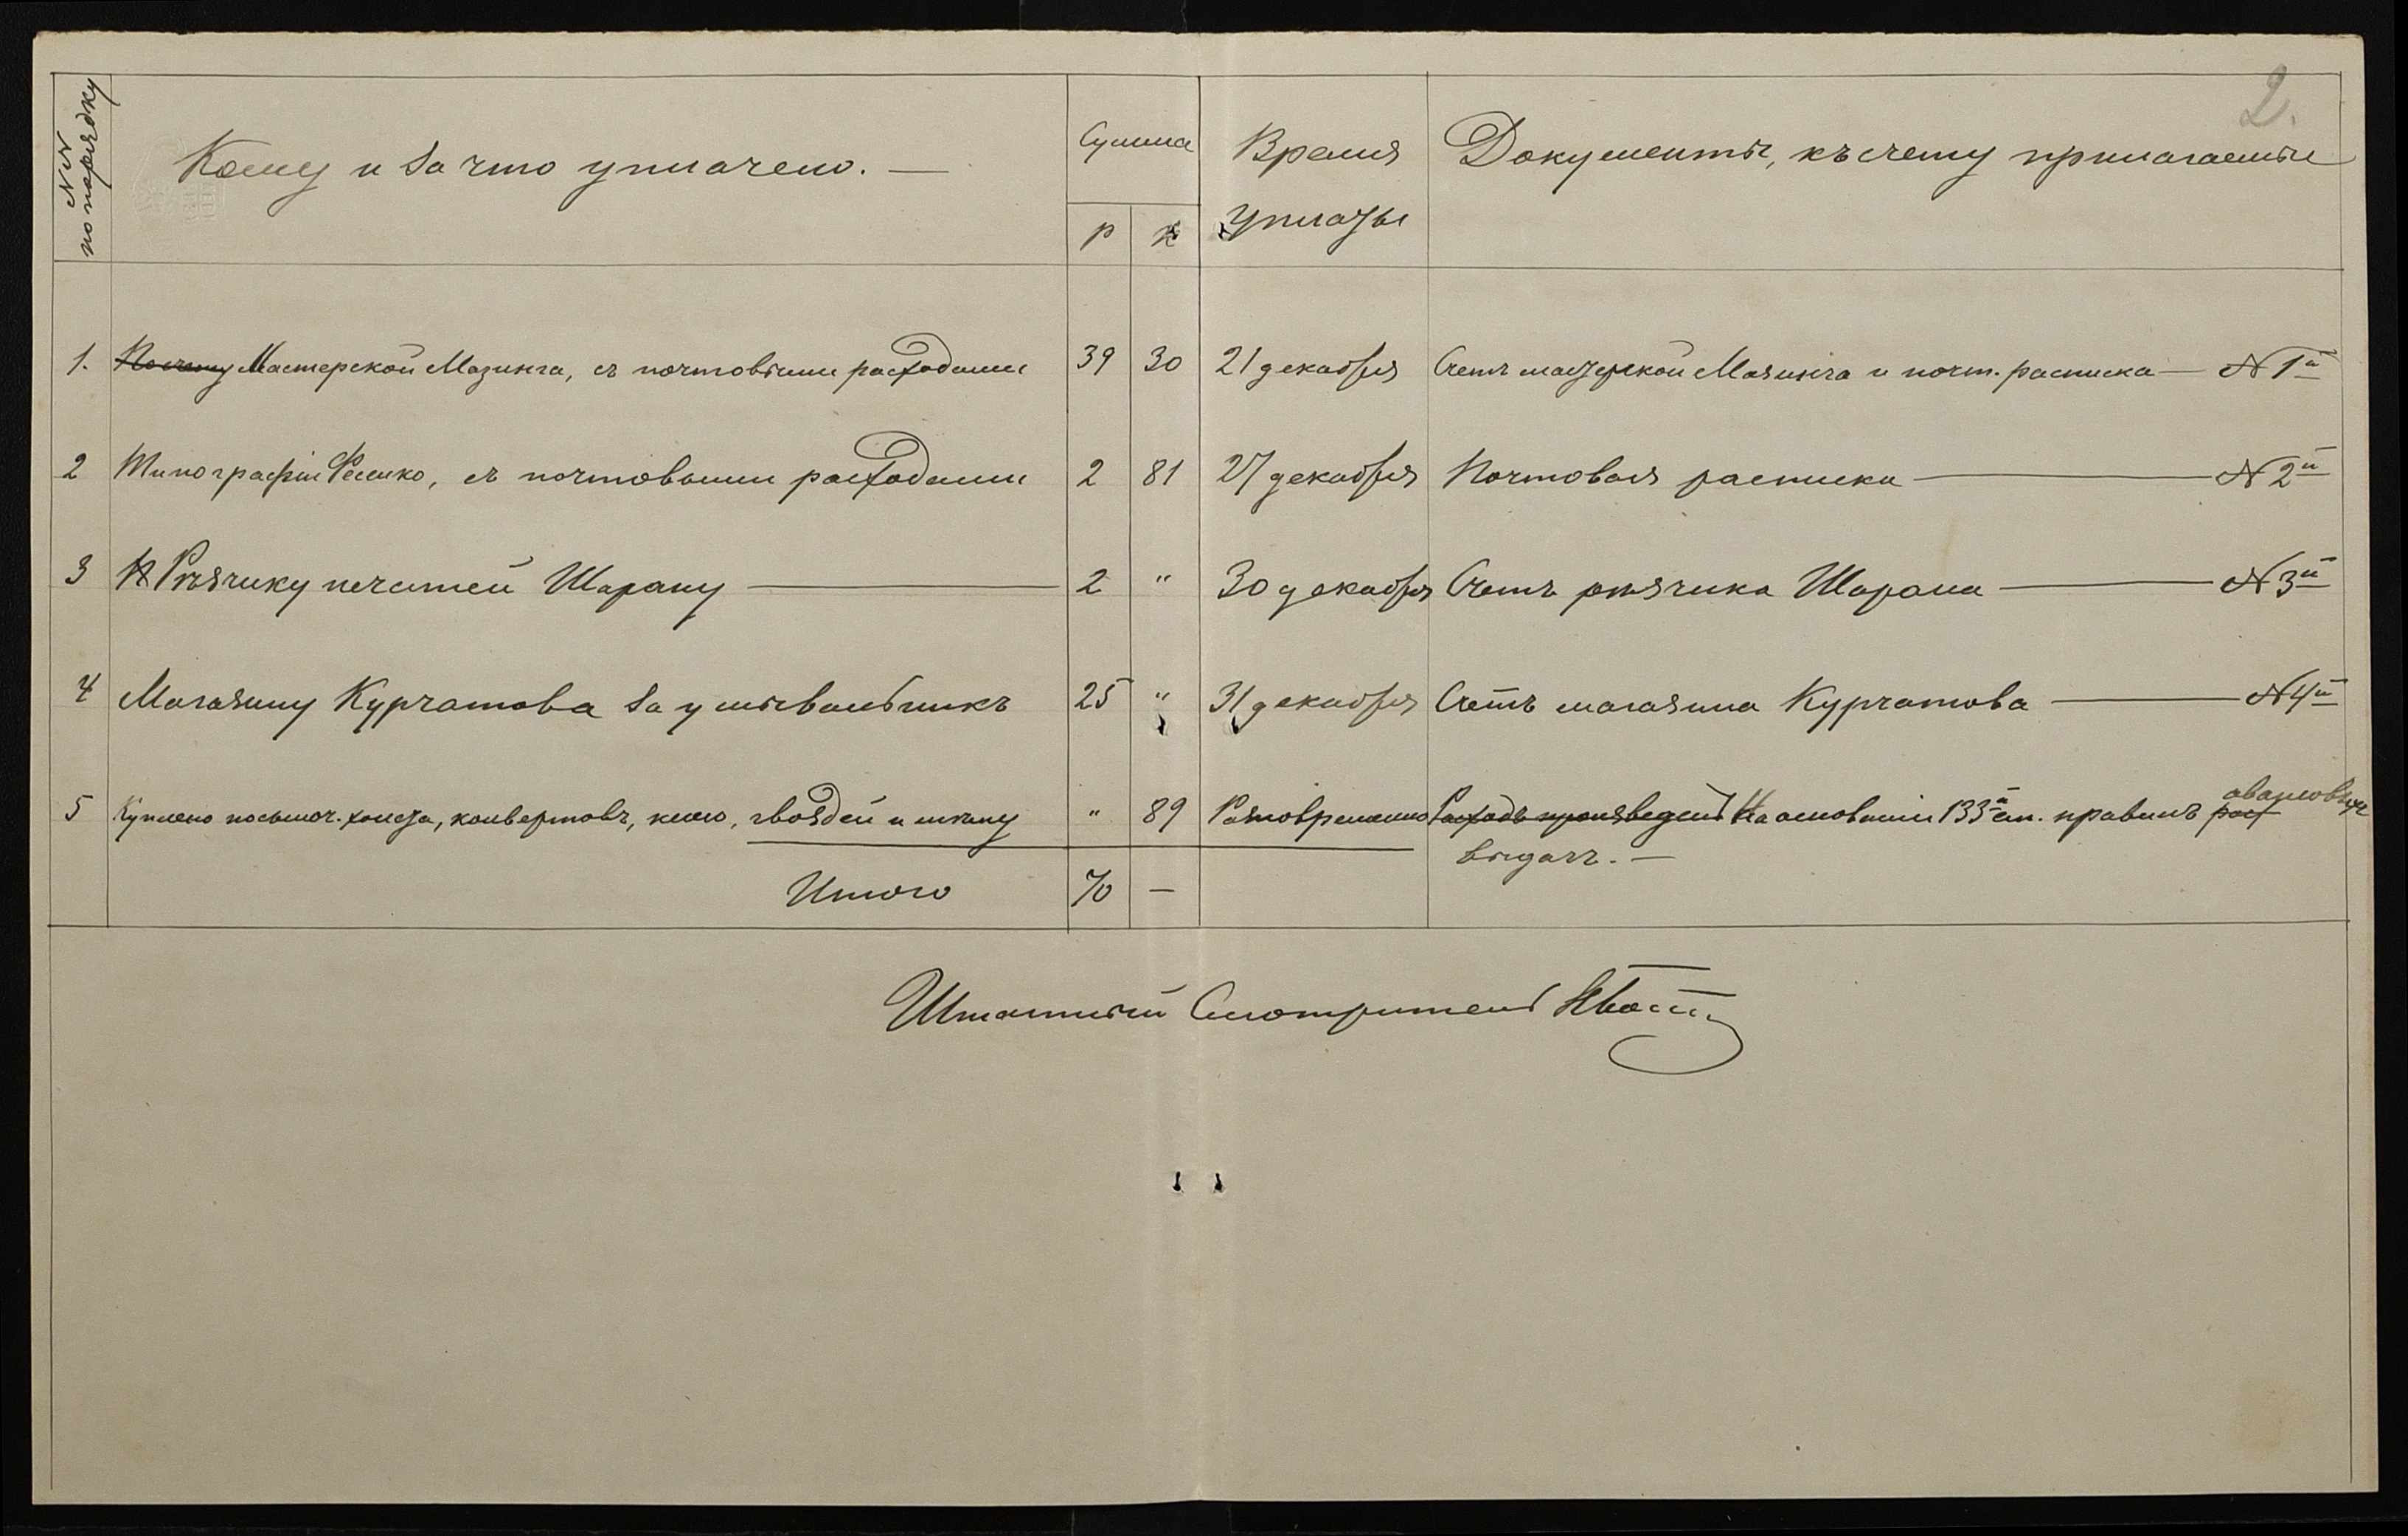 2.
NN по порядку
Кому и за что уплачено. —
Сумма
р к
Время уплаты
Документы, къ счету прилагаемые
1. По счету Мастерской Мазинга, съ почтовыми расходами 39 30 21 декабря Счетъ мастерской Мазинга и почт. расписка — N 1й
2 Типографіи Фесенко, съ почтовыми расходами 2 81 27 декабря Почтовая расписка — N 2й
3 Рѣзчику печатей Шарапу — 2 " 30 декабря Счетъ рѣзчика Шарапа — N 3й
4 Магазину Курчатова за умывальникъ 25 " 31 декабря Счетъ магазина Курчатова — N 4й
5 Куплено посылоч. холста, конвертовъ, клею, гвоздей и шпагу " 89 Разновременно Расходъ произведенъ На основаніи 133й ст. правилъ рас авансовыхъ
выдачъ. —
Итого 70 —
Штатный Смотритель